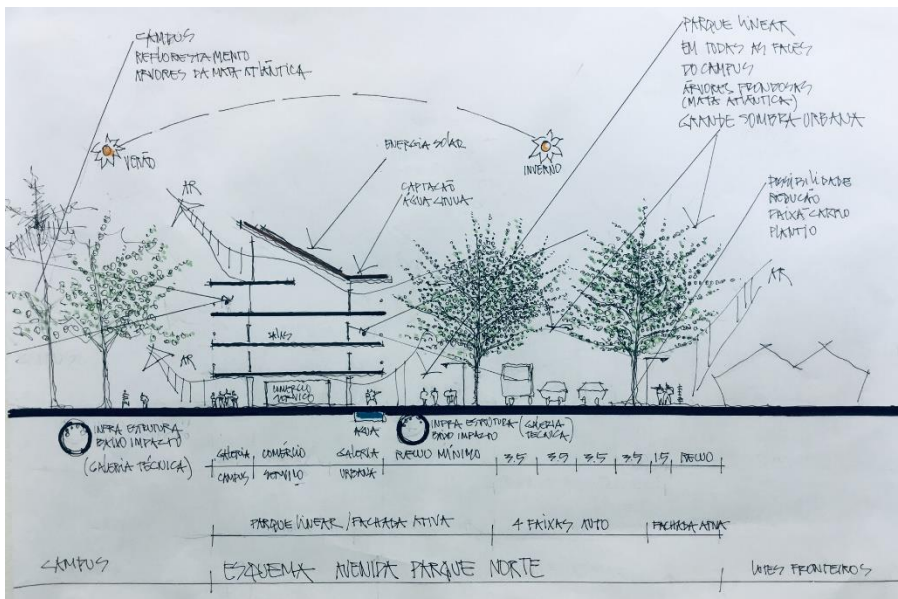 CAMPUS
REFLORESTAMENTO
ÁRVORES DA MATA ATLÂNTICA
PARQUE LINEAR
EM TODAS AS FACES
DO CAMPUS
ÁRVORES FRONDOSAS
(MATA ATLÂNTICA)
GRANDE SOMBRA URBANA
VERÃO
ENERGIA SOLAR
INVERNO
CAPTAÇÃO
ÁGUA CHUVA
POSSIBILIDADE
REDUÇÃO
FAIXA CARRO
PLANTIO
AR
AR
SALAS
AR
COMÉRCIO
SERVIÇO
INFRA ESTRUTURA
BAIXO IMPACTO
(GALERIA TÉCNICA)
ÁGUA
INFRA ESTRUTURA (GALERIA
BAIXO IMPACTO TÉCNICA)
GALERIA
CAMPUS
COMÉRCIO
SERVIÇO
GALERIA
URBANA
RECUO MÍNIMO
3.5
3.5
3.5
3.5
1.5
RECUO
PARQUE LINEAR / FACHADA ATIVA
4 FAIXAS AUTO
FACHADA ATIVA
CAMPUS
ESQUEMA AVENIDA PARQUE NORTE
LOTES FRONTEIROS